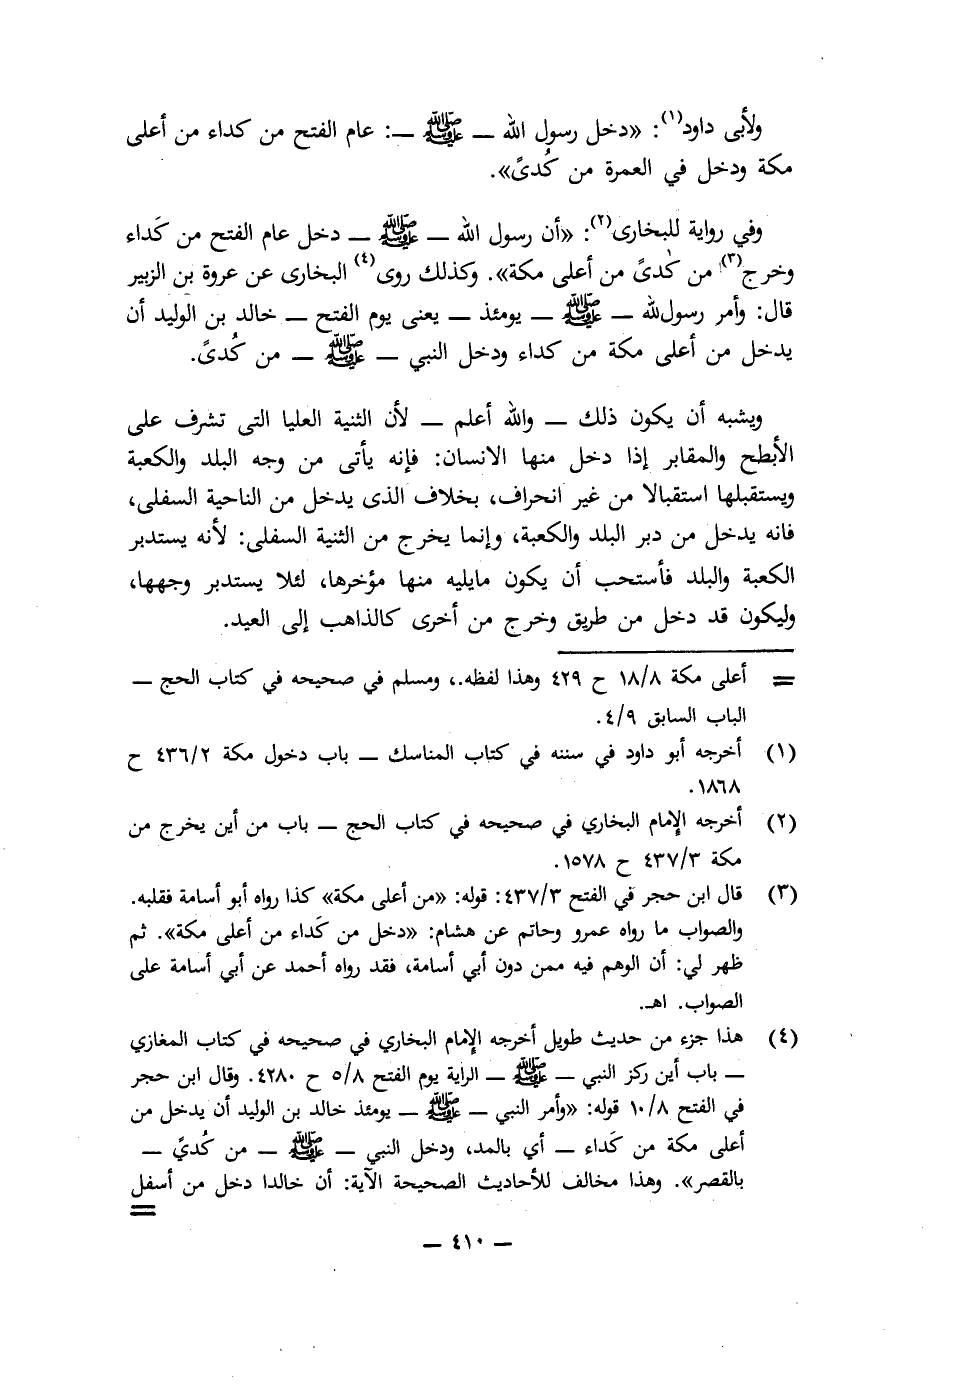 ولأبى داود(١): «دخل رسول الله ــ ﷺ ــ: عام الفتح من كداء من أعلى
مكة ودخل في العمرة من كُدىً».
وفي رواية للبخارى(٢): «أن رسول الله ــ ﷺ ــ دخل عام الفتح من كَداء
وخرج(٣) من كُدىً من أعلى مكة». وكذلك روى(٤) البخارى عن عروة بن الزبير
قال: وأمر رسول لله ــ ﷺ ــ يومئذ ــ يعنى يوم الفتح ــ خالد بن الوليد أن
يدخل من أعلى مكة من كداء ودخل النبي ــ ﷺ ــ من كُدىً.
ويشبه أن يكون ذلك ــ والله أعلم ــ لأن الثنية العليا التى تشرف على
الأبطح والمقابر إذا دخل منها الانسان: فإنه يأتى من وجه البلد والكعبة
ويستقبلها استقبالا من غير انحراف، بخلاف الذى يدخل من الناحية السفلى،
فانه يدخل من دبر البلد والكعبة، وإنما يخرج من الثنية السفلى: لأنه يستدبر
الكعبة والبلد فأستحب أن يكون مايليه منها مؤخرها، لئلا يستدبر وجهها،
وليكون قد دخل من طريق وخرج من أخرى كالذاهب إلى العيد.
= أعلى مكة ١٨/٨ ح ٤٢٩ وهذا لفظه.، ومسلم في صحيحه في كتاب الحج ــ
الباب السابق ٤/٩.
(١) أخرجه أبو داود في سننه في كتاب المناسك ــ باب دخول مكة ٤٣٦/٢ ح
١٨٦٨.
(٢) أخرجه الإمام البخاري في صحيحه في كتاب الحج ــ باب من أين يخرج من
مكة ٤٣٧/٣ ح ١٥٧٨.
(٣) قال ابن حجر في الفتح ٤٣٧/٣: قوله: «من أعلى مكة» كذا رواه أبو أسامة فقلبه.
والصواب ما رواه عمرو وحاتم عن هشام: «دخل من كَداء من أعلى مكة». ثم
ظهر لي: أن الوهم فيه ممن دون أبي أسامة، فقد رواه أحمد عن أبي أسامة على
الصواب. اهـ.
(٤) هذا جزء من حديث طويل أخرجه الإمام البخاري في صحيحه في كتاب المغازي
ــ باب أين ركز النبي ــ ﷺ ــ الراية يوم الفتح ٥/٨ ح ٤٢٨٠. وقال ابن حجر
في الفتح ١٠/٨ قوله: «وأمر النبي ــ ﷺ ــ يومئذ خالد بن الوليد أن يدخل من
أعلى مكة من كَداء ــ أي بالمد، ودخل النبي ــ ﷺ ــ من كُديً ــ
بالقصر». وهذا مخالف للأحاديث الصحيحة الآية: أن خالدا دخل من أسفل
=
ــ ٤١٠ ــ